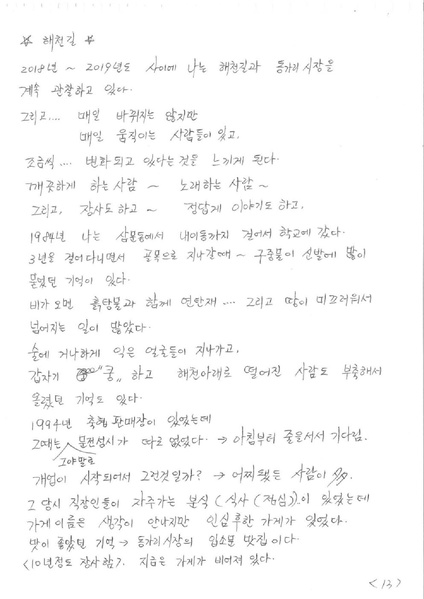 ☆ 해천길 ☆
2018년 ~ 2019년도 사이에 나는 해천길과 동가리 시장을
계속 관찰하고 있다.
그리고.... 매일 바뀌지는 않지만
매일 움직이는 사람들이 있고,
조금씩 .... 변화 되고 있다는 것을 느끼게 된다.
깨끗하게 하는 사람 ~ 노래하는 사람 ~
그리고, 장사도 하고 ~ 정답게 이야기도 하고,
1984년 나는 삼문동에서 내이동까지 걸어서 학교에 갔다.
3년을 걸어다니면서 골목으로 지나갈때 ~ 구중물이 신발에 많이
묻었던 기억이 있다.
비가 오면 흙탕물과 함께 연탄재 .... 그리고 땅이 미끄러워서
넘어지는 일이 많았다.
술에 거나하게 익은 얼굴들이 지나가고,
갑자기 "쿵" 하고 해천아래로 떨어진 사람도 부축해서
올렸던 기억도 있다.
1994년 축협 판매장이 있었는데
그때는 문전성시가 따로 없었다. → 아침부터 줄을서서 기다림.
그야말로
개업이 시작되어서 그런것일까? → 어찌됐든 사람이 多.
그 당시 직장인들이 자주가는 분식 (식사 (점심))이 있었는데
가게이름은 생각이 안나지만 인심후한 가게가 있었다.
맛이 좋았던 기억 → 동가리시장의 입소문 맛집이다.
<10년정도 장사함?. 지금은 가게가 비어져 있다.
<13>